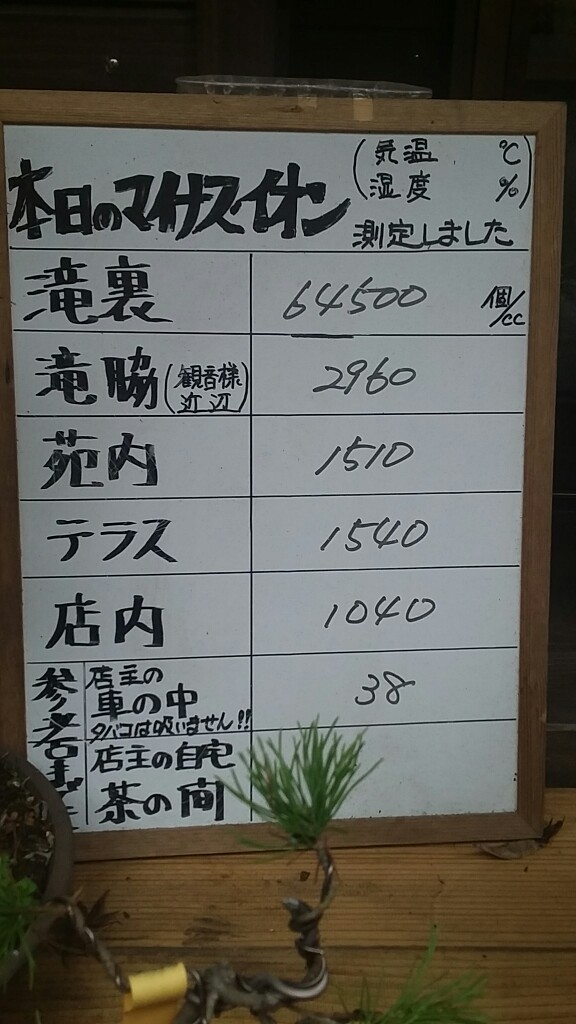 本日のマイナスイオン
(気温 ℃
湿度 %)
測定しました
滝裏 64500 個/cc
滝脇(観音様近辺) 2960
苑内 1510
テラス 1540
店内 1040
参考までに
店主の
車の中 38
タバコは吸いません!!
店主の自宅
茶の間